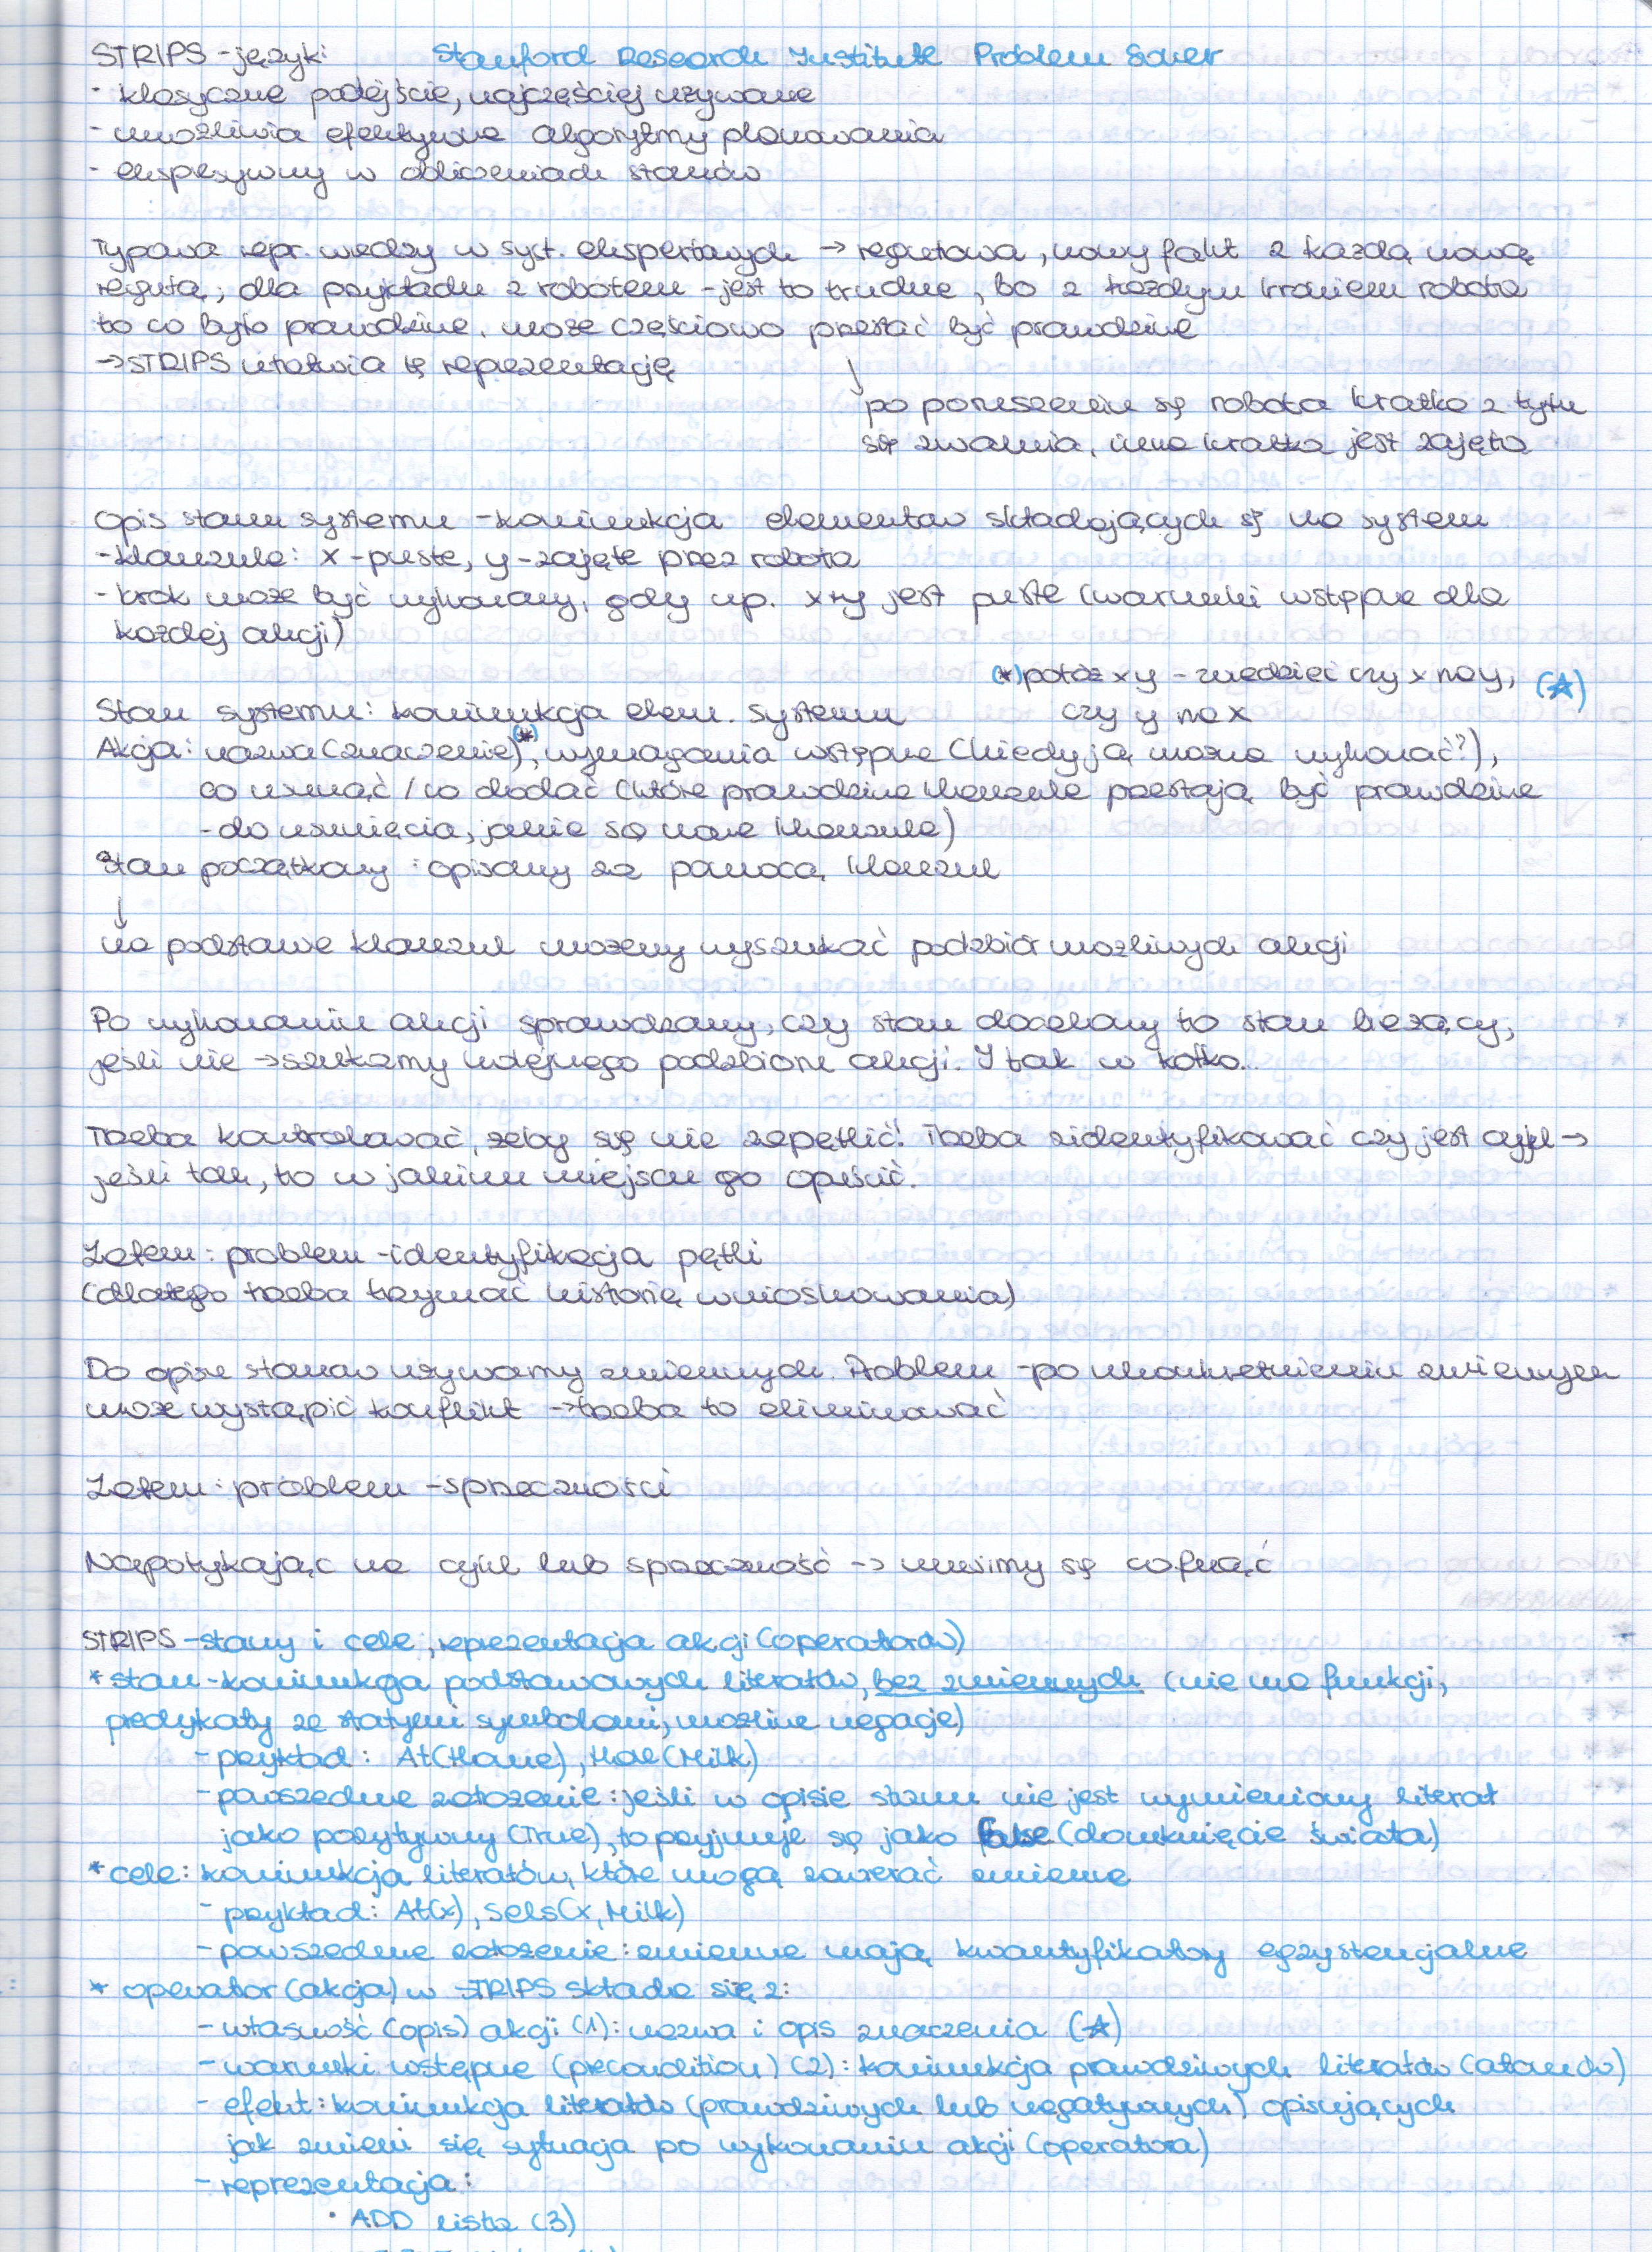 STRIPS - język: Stanford Research Institute Problem Solver
- klasyczne podejście, najczęściej używane
- umożliwia efektywne algorytmy planowania
- ekspresywny w obliczeniach stanów
Typowa repr. wiedzy w syst. ekspertowych → regułowa, nowy fakt z każdą nową
regułą; dla przykładu z robotem - jest to trudne, bo z każdym krokiem robota
to co było prawdziwe, może częściowo przestać być prawdziwe
→ STRIPS ułatwia tę reprezentację
↓
po poruszeniu się robota kratka z tyłu
się zwalnia, inna kratka jest zajęta
Opis stanu systemu - koniunkcja elementów składających się na system
- klauzule: x - puste, y - zajęte przez robota
- krok może być wykonany, gdy np. x+y jest puste (warunki wstępne dla
każdej akcji)
(*) połóż x y - wiedzieć czy x na y, (☆)
czy y na x
Stan systemu: koniunkcja elem. systemu
Akcja: nazwa (znaczenie)(*), wymagania wstępne (kiedy ją można wykonać?),
co usunąć / co dodać (które prawdziwe klauzule przestają być prawdziwe
- do usunięcia, jakie są nowe klauzule)
Stan początkowy: opisany za pomocą klauzul
↓
na podstawie klauzul możemy wyszukać podzbiór możliwych akcji
Po wykonaniu akcji sprawdzamy, czy stan docelowy to stan bieżący,
jeśli nie → szukamy kolejnego podzbioru akcji. I tak w kółko...
Trzeba kontrolować, żeby się nie zapętlić! Trzeba zidentyfikować czy jest cykl →
jeśli tak, to w jakim miejscu go opuścić.
Zatem: problem - identyfikacja pętli
(dlatego trzeba trzymać historię wnioskowania)
Do opisu stanów używamy zmiennych. Problem - po ukonkretnieniu zmiennych
może wystąpić konflikt → trzeba to eliminować
Zatem: problem - sprzeczności
Napotykając na cykl lub sprzeczność → musimy się cofnąć
STRIPS - stany i cele, reprezentacja akcji (operatorów)
* stan - koniunkcja podstawowych literałów, bez zmiennych (nie ma funkcji,
predykaty ze stałymi symbolami, możliwe negacje)
- przykład: At(Home), Have(Milk)
- powszechne założenie: jeśli w opisie stanu nie jest wymieniony literał
jako pozytywny (True), to przyjmuje się jako False (domknięcie świata)
* cele: koniunkcja literałów, które mogą zawierać zmienne
- przykład: At(x), Sells(x, Milk)
- powszechne założenie: zmienne mają kwantyfikatory egzystencjalne
* operator (akcja) w STRIPS składa się z:
- własność (opis) akcji (1): nazwa i opis znaczenia (☆)
- warunki wstępne (precondition) (2): koniunkcja prawdziwych literałów (atomów)
- efekt: koniunkcja literałów (prawdziwych lub negatywnych) opisujących
jak zmieni się sytuacja po wykonaniu akcji (operatora)
- reprezentacja:
• ADD lista (3)